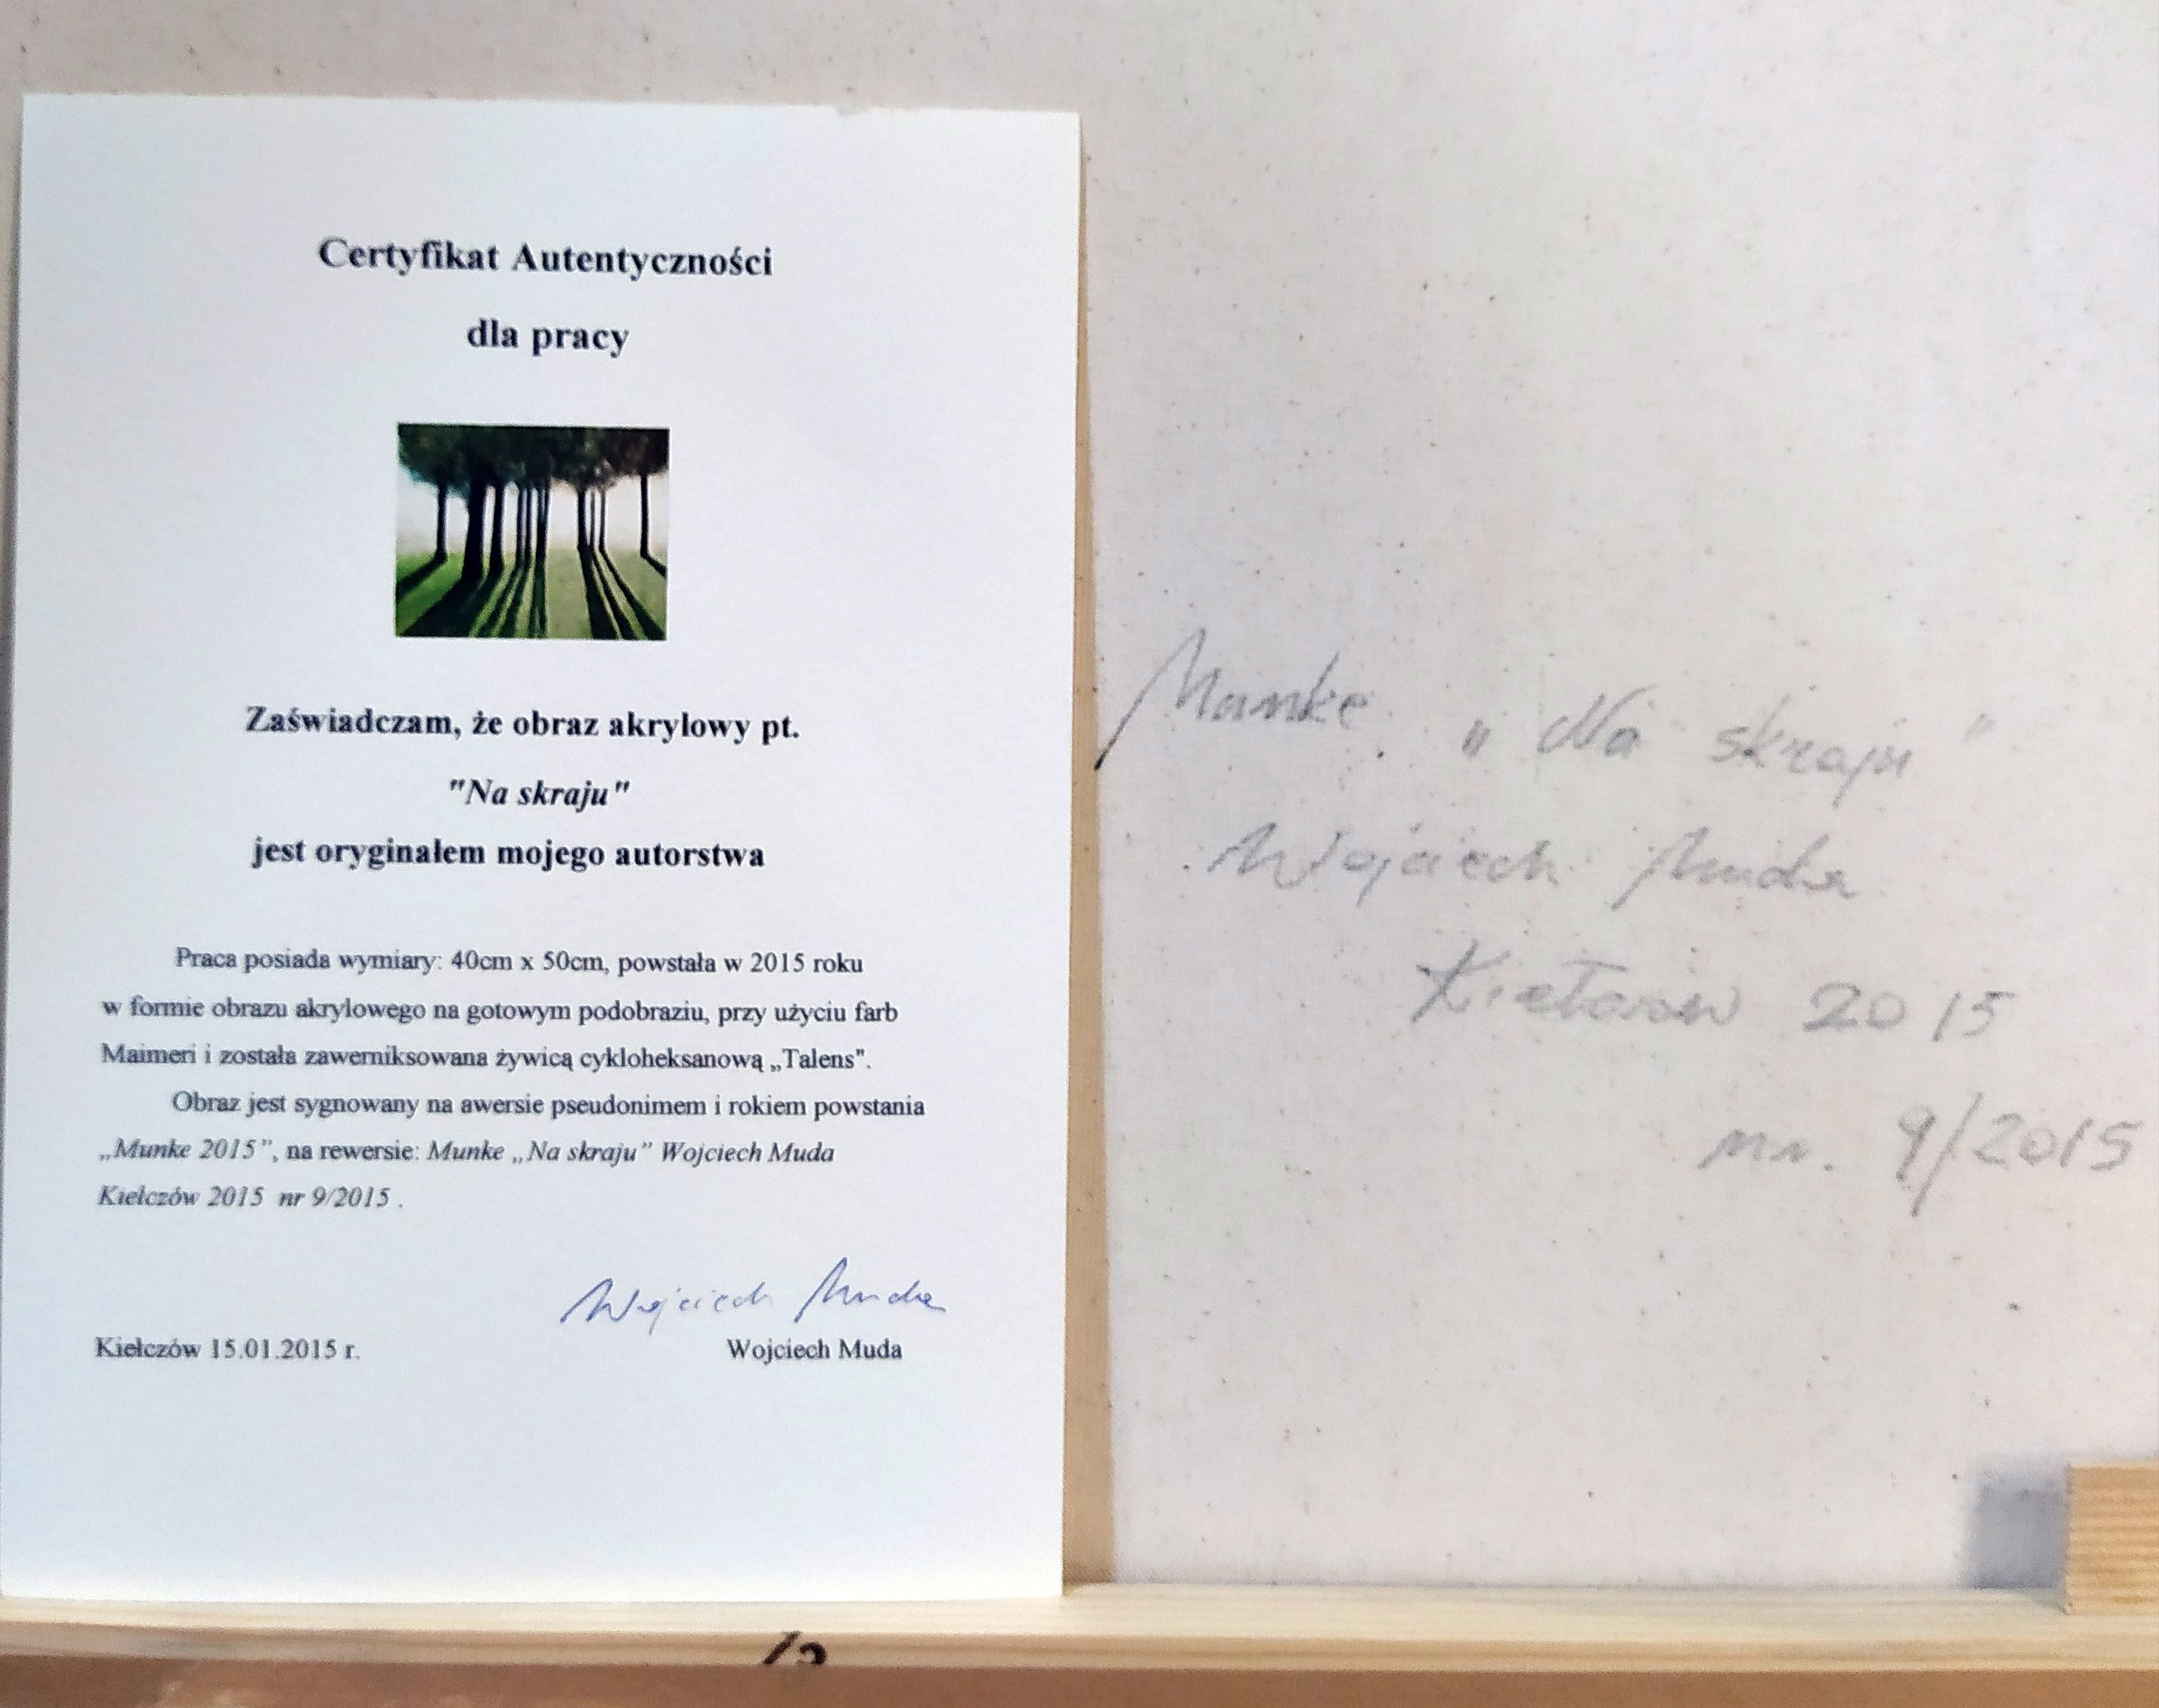 Certyfikat Autentyczności
dla pracy
Zaświadczam, że obraz akrylowy pt.
"Na skraju"
jest oryginałem mojego autorstwa
Praca posiada wymiary: 40cm x 50cm, powstała w 2015 roku
w formie obrazu akrylowego na gotowym podobraziu, przy użyciu farb
Maimeri i została zawerniksowana żywicą cykloheksanową „Talens".
Obraz jest sygnowany na awersie pseudonimem i rokiem powstania
„Munke 2015”, na rewersie: Munke „Na skraju” Wojciech Muda
Kiełczów 2015 nr 9/2015 .
Wojciech Muda
Kiełczów 15.01.2015 r.
Wojciech Muda
Munke „Na skraju”
Wojciech Muda
Kiełczów 2015
nr. 9/2015